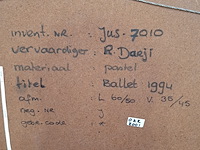 invent. NR. : Jus-7010
vervaardiger : R. Daeji
materiaal : pastel
titel : Ballet 1994
afm. : L 60/80 V. 35/45
neg. nr : J
gebr. code : *